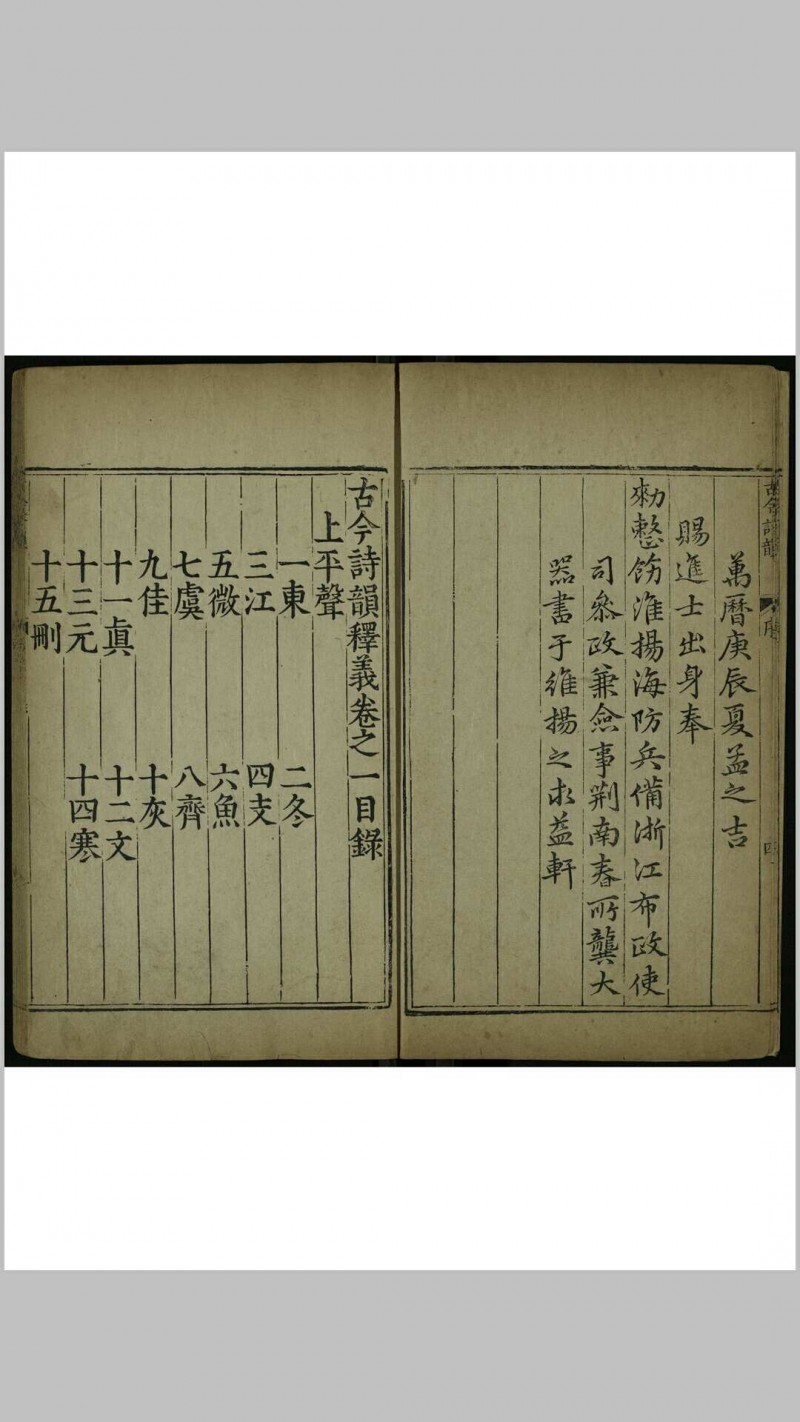 古今詩韻 序
萬曆庚辰夏孟之吉
賜進士出身奉
勑整飭淮揚海防兵備浙江布政使
司叅政兼僉事荆南春所龔大
器書于維揚之求益軒
古今詩韻釋義卷之一目錄
上平聲
一東 二冬
三江 四支
五微 六魚
七虞 八齊
九佳 十灰
十一眞 十二文
十三元 十四寒
十五刪